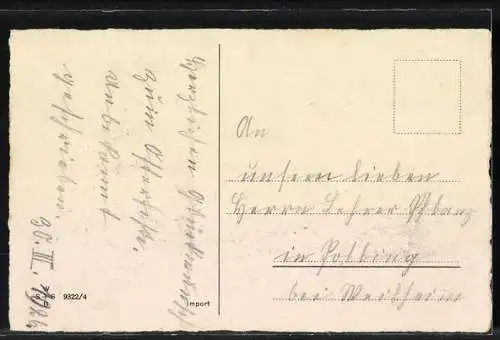 Herzlichen Glückwunsch
zum Osterfeste.
unbekannt
geschrieben.
30. III. 1926.
An
unsern lieben
Herrn Lehrer Pflanz
in Polling
bei Weilheim
9322/4
Import